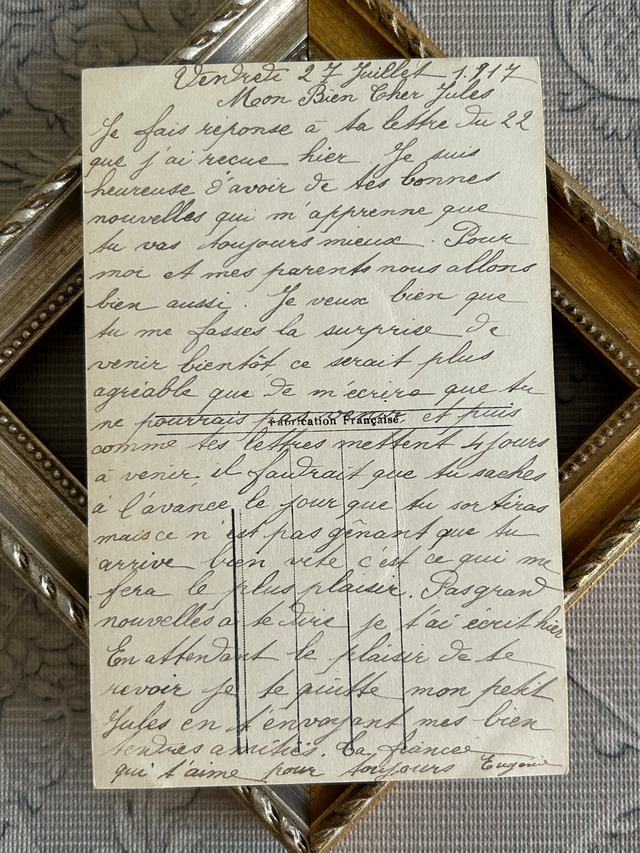 Vendredi 27 Juillet 1917
Mon Bien Cher Jules
Je fais réponse à ta lettre du 22
que j'ai recue hier. Je suis
heureuse d'avoir de tes bonnes
nouvelles qui m'apprenne que
tu vas toujours mieux. Pour
moi et mes parents nous allons
bien aussi. Je veux bien que
tu me fasses la surprise de
venir bientôt ce serait plus
agréable que de m'écrire que tu
ne pourrais pas venir et puis
Fabrication Française
comme tes lettres mettent 4 jours
à venir il faudrait que tu saches
à l'avance le jour que tu sortiras
mais ce n'est pas gênant que tu
arrive bien vite c'est ce qui me
fera le plus plaisir. Pas grand
nouvelles a te dire je t'ai écrit hier
En attendant le plaisir de te
revoir je te quitte mon petit
Jules en t'envoyant mes bien
tendres amitiés. Ta fiancée
qui t'aime pour toujours Eugénie